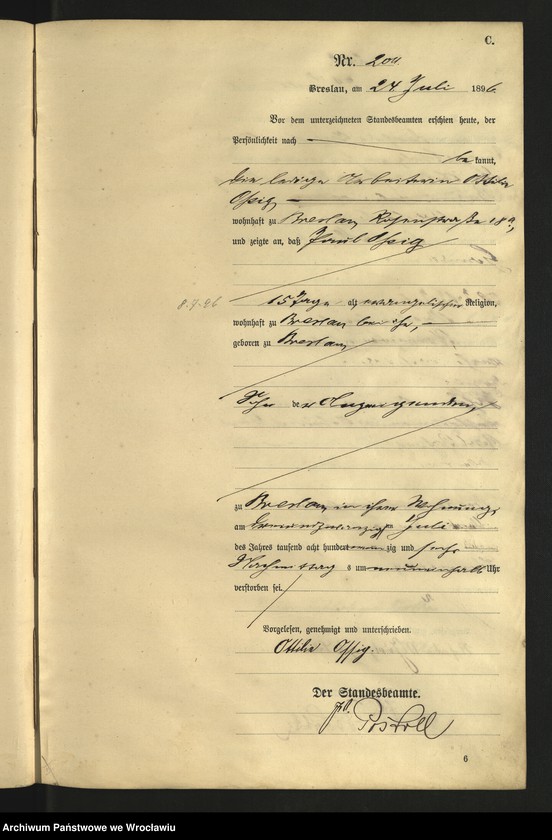 C.
Nr. 204
Breslau, am 24 Juli 1896
Vor dem unterzeichneten Standesbeamten erschien heute, der
Persönlichkeit nach
be kannt,
die ledige Arbeiterin Ottilie
Ossig
wohnhaft zu Breslau, Rosenstraße 18a,
und zeigte an, daß Paul Ossig
8.7.96
15 Tage alt, evangelischer Religion,
wohnhaft zu Breslau bei ihr,
geboren zu Breslau
Sohn der Anzeigenden,
zu Breslau, in ihrer Wohnung,
am Juli
des Jahres tausend acht hundert neunzig und sechs
Nachmittags um neuneinhalb Uhr
verstorben sei.
Vorgelesen, genehmigt und unterschrieben.
Ottilie Ossig.
Der Standesbeamte.
6
Archiwum Państwowe we Wrocławiu